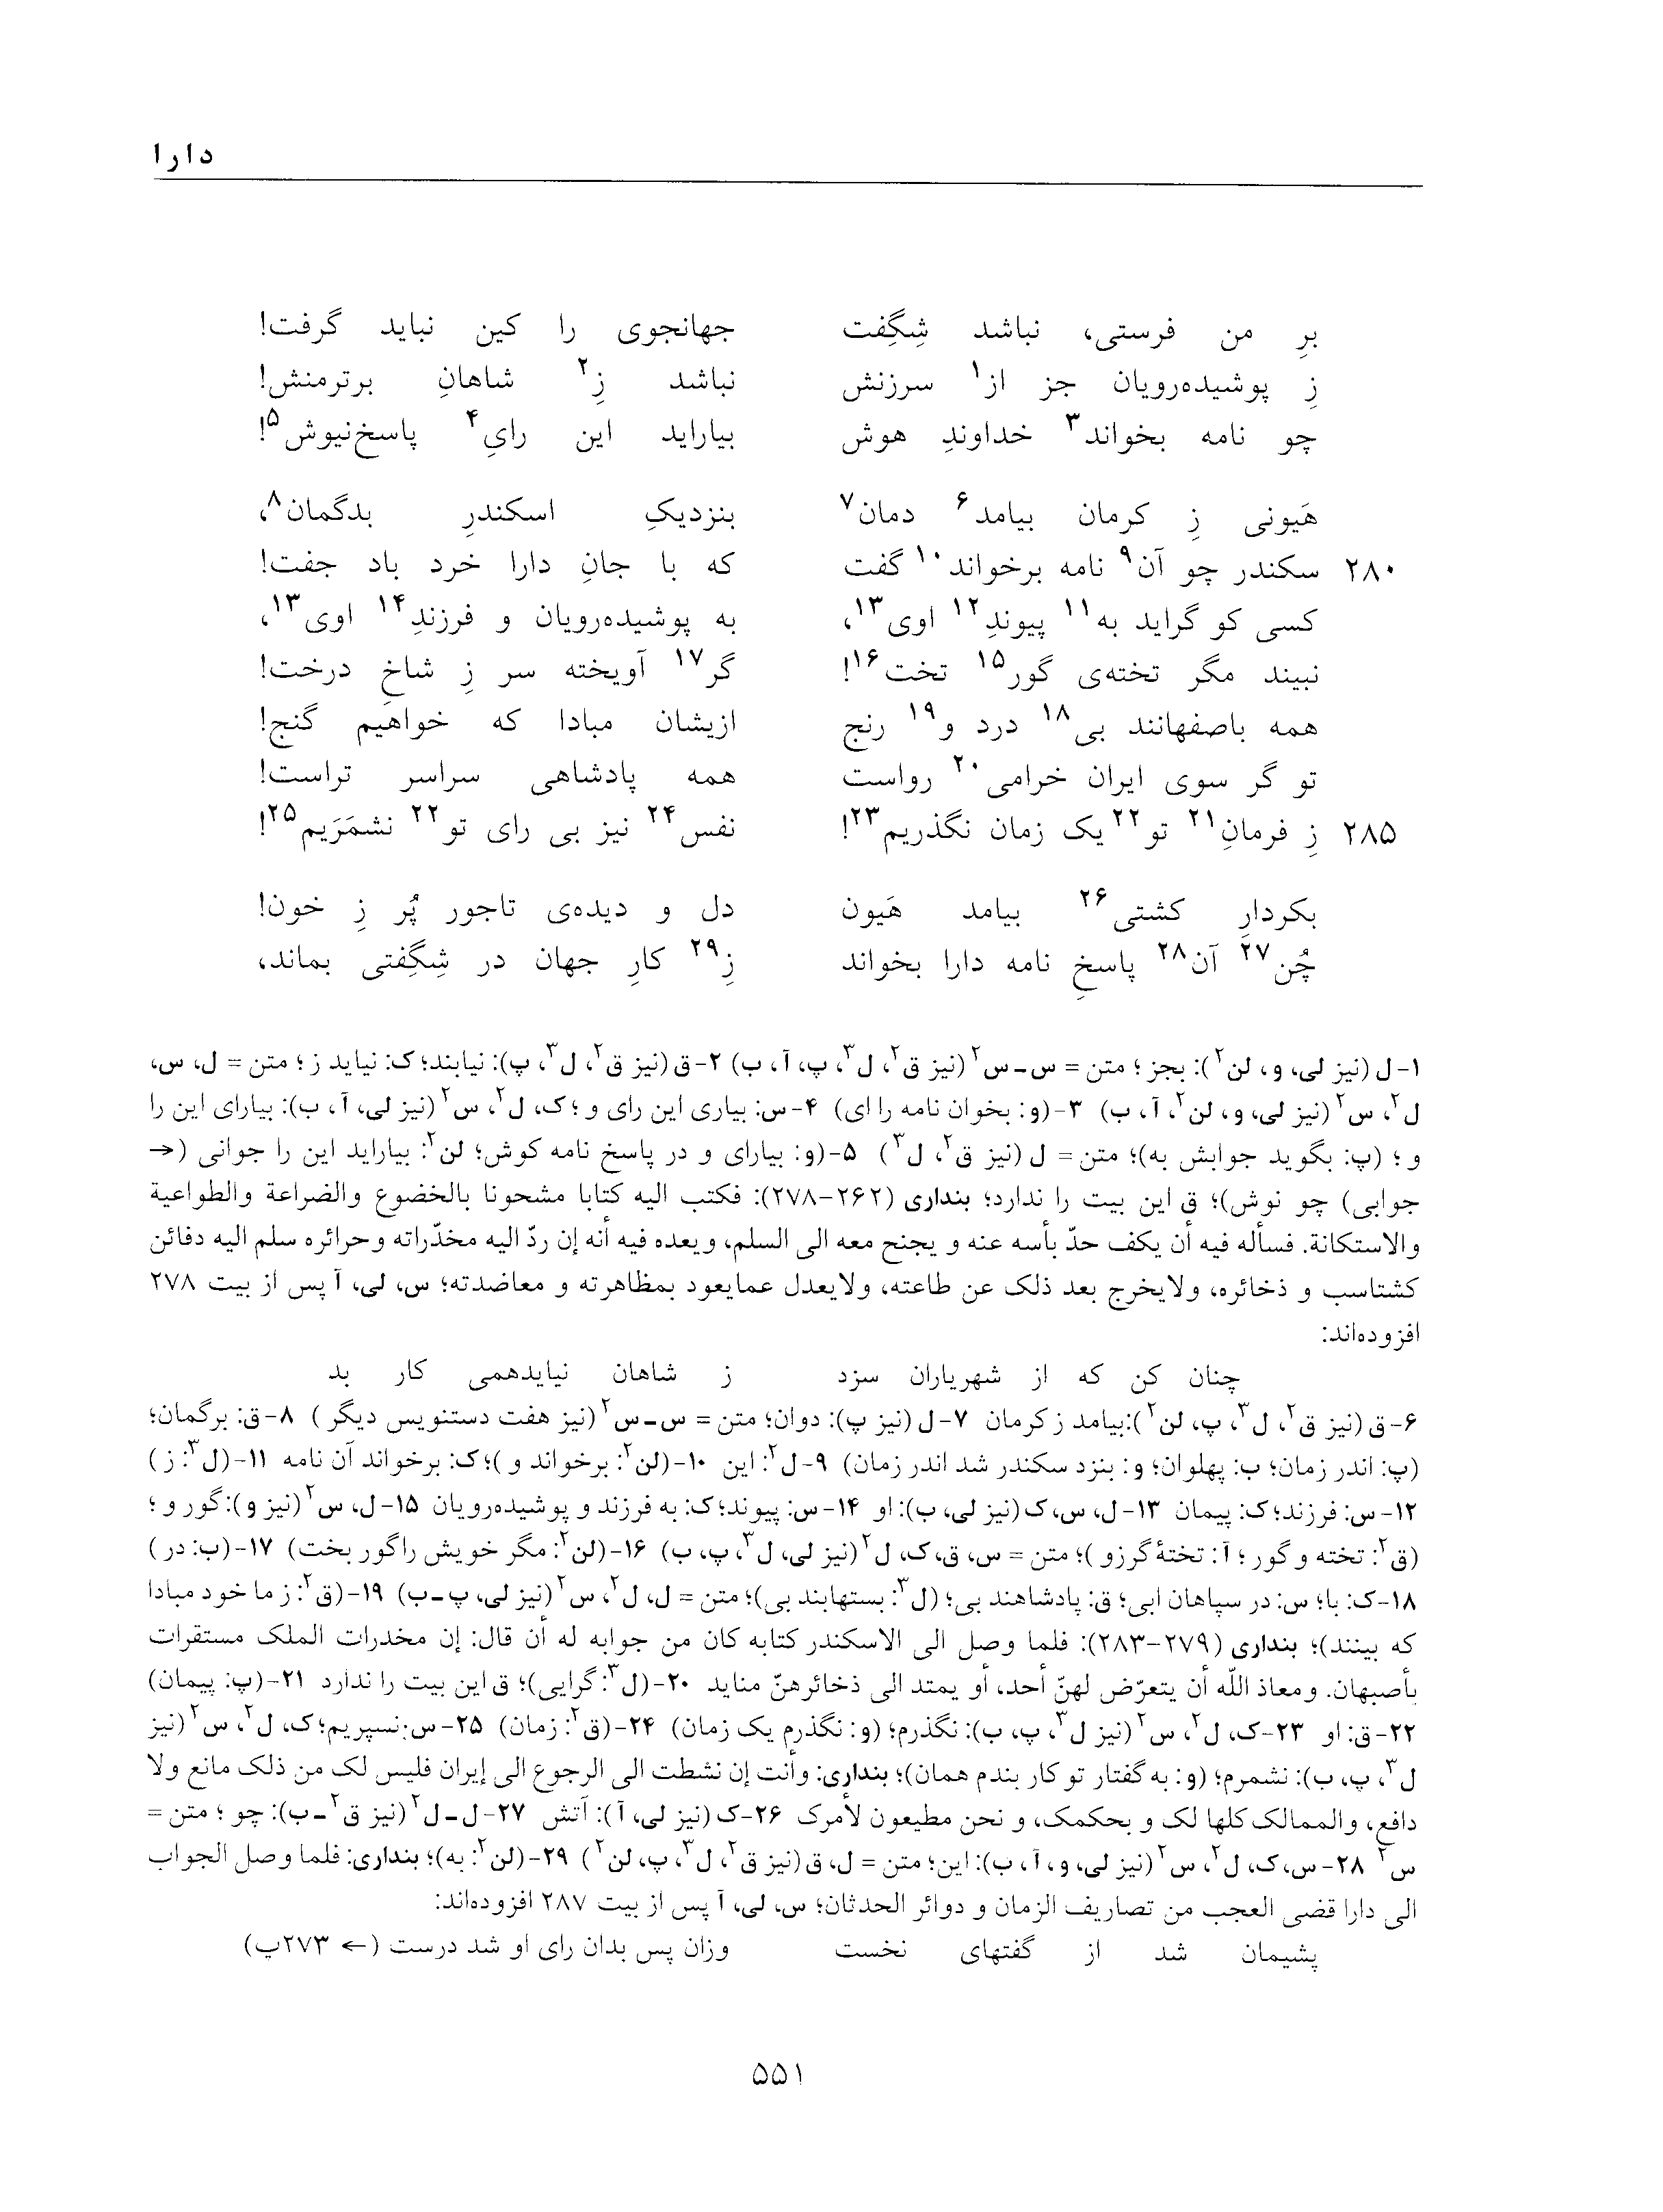 دارا
برِ من فرستی، نباشد شِگِفت جهانجوی را کین نباید گرفت!
زِ پوشیده‌رویان جز از۱ سرزنش نباشد زِ۲ شاهانِ برترمنش!
چو نامه بخواند۳ خداوندِ هوش بیاراید این رایِ۴ پاسخ‌نیوش۵!
هَیونی زِ کرمان بیامد۶ دمان۷ بنزدیکِ اسکندرِ بدگمان۸،
۲۸۰ سکندر چو آن۹ نامه برخواند۱۰ گفت که با جانِ دارا خرد باد جفت!
کسی کو گراید به۱۱ پیوندِ۱۲ اوی۱۳، به پوشیده‌رویان و فرزندِ۱۴ اوی۱۳،
نبیند مگر تخته‌ی گور۱۵ تخت۱۶! گر۱۷ آویخته سر زِ شاخِ درخت!
همه باصفهانند بی۱۸ درد و۱۹ رنج ازیشان مبادا که خواهیم گنج!
تو گر سوی ایران خرامی۲۰ رواست همه پادشاهی سراسر تراست!
۲۸۵ زِ فرمانِ۲۱ تو۲۲ یک زمان نگذریم۲۳! نفس۲۴ نیز بی رای تو۲۲ نشمَرَیم۲۵!
بکردارِ کشتی۲۶ بیامد هَیون دل و دیده‌ی تاجور پُر زِ خون!
چُن۲۷ آن۲۸ پاسخِ نامه دارا بخواند زِ۲۹ کارِ جهان در شِگِفتی بماند،
۱-ل (نیز لی، و، لن۲): بجز؛ متن = س-س۲ (نیز ق۲، ل۳، پ، آ، ب) ۲-ق (نیز ق۲، ل۳، پ): نیابند؛ ک: نیاید ز؛ متن = ل، س،
ل۲، س۲ (نیز لی، و، لن۲، آ، ب) ۳-(و: بخوان نامه را ای) ۴-س: بیاری این رای و؛ ک، ل۲، س۲ (نیز لی، آ، ب): بیارای این را
و؛ (پ: بگوید جوابش به)؛ متن = ل (نیز ق۲، ل۳) ۵-(و: بیارای و در پاسخ نامه کوش؛ لن۲: بیاراید این را جوانی (→
جوابی) چو نوش)؛ ق این بیت را ندارد؛ بنداری (۲۶۲-۲۷۸): فکتب الیه کتابا مشحونا بالخضوع والضراعة والطواعیة
والاستکانة. فسأله فیه أن یکف حدّ بأسه عنه و یجنح معه الی السلم، ویعده فیه أنه إن ردّ الیه مخدّراته وحرائره سلم الیه دفائن
کشتاسب و ذخائره، ولایخرج بعد ذلک عن طاعته، ولایعدل عمایعود بمظاهرته و معاضدته؛ س، لی، آ پس از بیت ۲۷۸
افزوده‌اند:
چنان کن که از شهریاران سزد ز شاهان نیایدهمی کار بد
۶-ق (نیز ق۲، ل۳، پ، لن۲): بیامد ز کرمان ۷-ل (نیز پ): دوان؛ متن = س-س۲ (نیز هفت دستنویس دیگر) ۸-ق: برگمان؛
(پ: اندر زمان؛ ب: پهلوان؛ و: بنزد سکندر شد اندر زمان) ۹-ل۲: این ۱۰-(لن۲: برخواند و)؛ ک: برخواند آن نامه ۱۱-(ل۳: ز)
۱۲-س: فرزند؛ ک: پیمان ۱۳-ل، س، ک (نیز لی، ب): او ۱۴-س: پیوند؛ ک: به فرزند و پوشیده‌رویان ۱۵-ل، س۲ (نیز و): گور و؛
(ق۲: تخته و گور؛ آ: تختهٔ گرزو)؛ متن = س، ق، ک، ل۲ (نیز لی، ل۳، پ، ب) ۱۶-(لن۲: مگر خویش را گور بخت) ۱۷-(ب: در)
۱۸-ک: با؛ س: در سپاهان ابی؛ ق: پادشاهند بی؛ (ل۳: بستهابند بی)؛ متن = ل، ل۲، س۲ (نیز لی، پ-ب) ۱۹-(ق۲: ز ما خود مبادا
که بینند)؛ بنداری (۲۷۹-۲۸۳): فلما وصل الی الاسکندر کتابه کان من جوابه له أن قال: إن مخدرات الملک مستقرات
بأصبهان. ومعاذ اللّه أن یتعرّض لهنّ أحد، أو یمتد الی ذخائرهنّ مناید ۲۰-(ل۳: گرایی)؛ ق این بیت را ندارد ۲۱-(پ: پیمان)
۲۲-ق: او ۲۳-ک، ل۲، س۲ (نیز ل۳، پ، ب): نگذرم؛ (و: نگذرم یک زمان) ۲۴-(ق۲: زمان) ۲۵-س: نسپریم؛ ک، ل۲، س۲ (نیز
ل۳، پ، ب): نشمرم؛ (و: به گفتار تو کار بندم همان)؛ بنداری: وأنت إن نشطت الی الرجوع الی إیران فلیس لک من ذلک مانع ولا
دافع، والممالک کلها لک و بحکمک، و نحن مطیعون لأمرک ۲۶-ک (نیز لی، آ): آتش ۲۷-ل-ل۲ (نیز ق۲-ب): چو؛ متن =
س۲ ۲۸-س، ک، ل۲، س۲ (نیز لی، و، آ، ب): این؛ متن = ل، ق (نیز ق۲، ل۳، پ، لن۲) ۲۹-(لن۲: به)؛ بنداری: فلما وصل الجواب
الی دارا قضی العجب من تصاریف الزمان و دوائر الحدثان؛ س، لی، آ پس از بیت ۲۸۷ افزوده‌اند:
پشیمان شد از گفتهای نخست وزان پس بدان رای او شد درست (← ۲۷۳ب)
۵۵۱